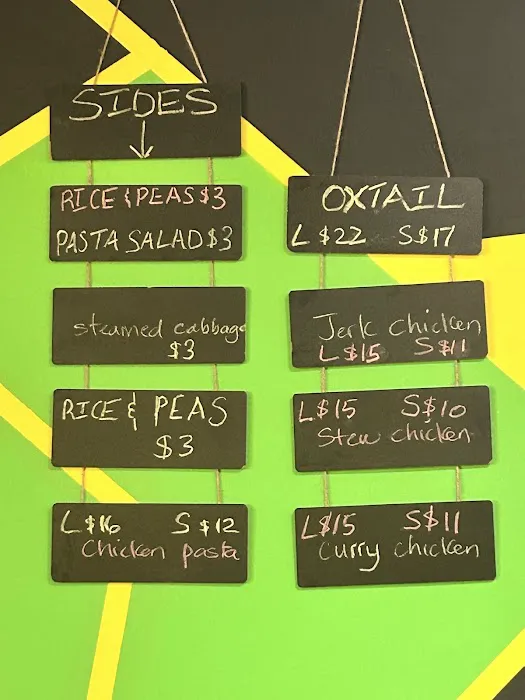 SIDES
RICE & PEAS $3
PASTA SALAD $3
steamed cabbage
$3
RICE & PEAS
$3
L $16 S $12
Chicken pasta
OXTAIL
L $22 S $17
Jerk chicken
L $15 S $11
L $15 S $10
Stew chicken
L $15 S $11
Curry chicken